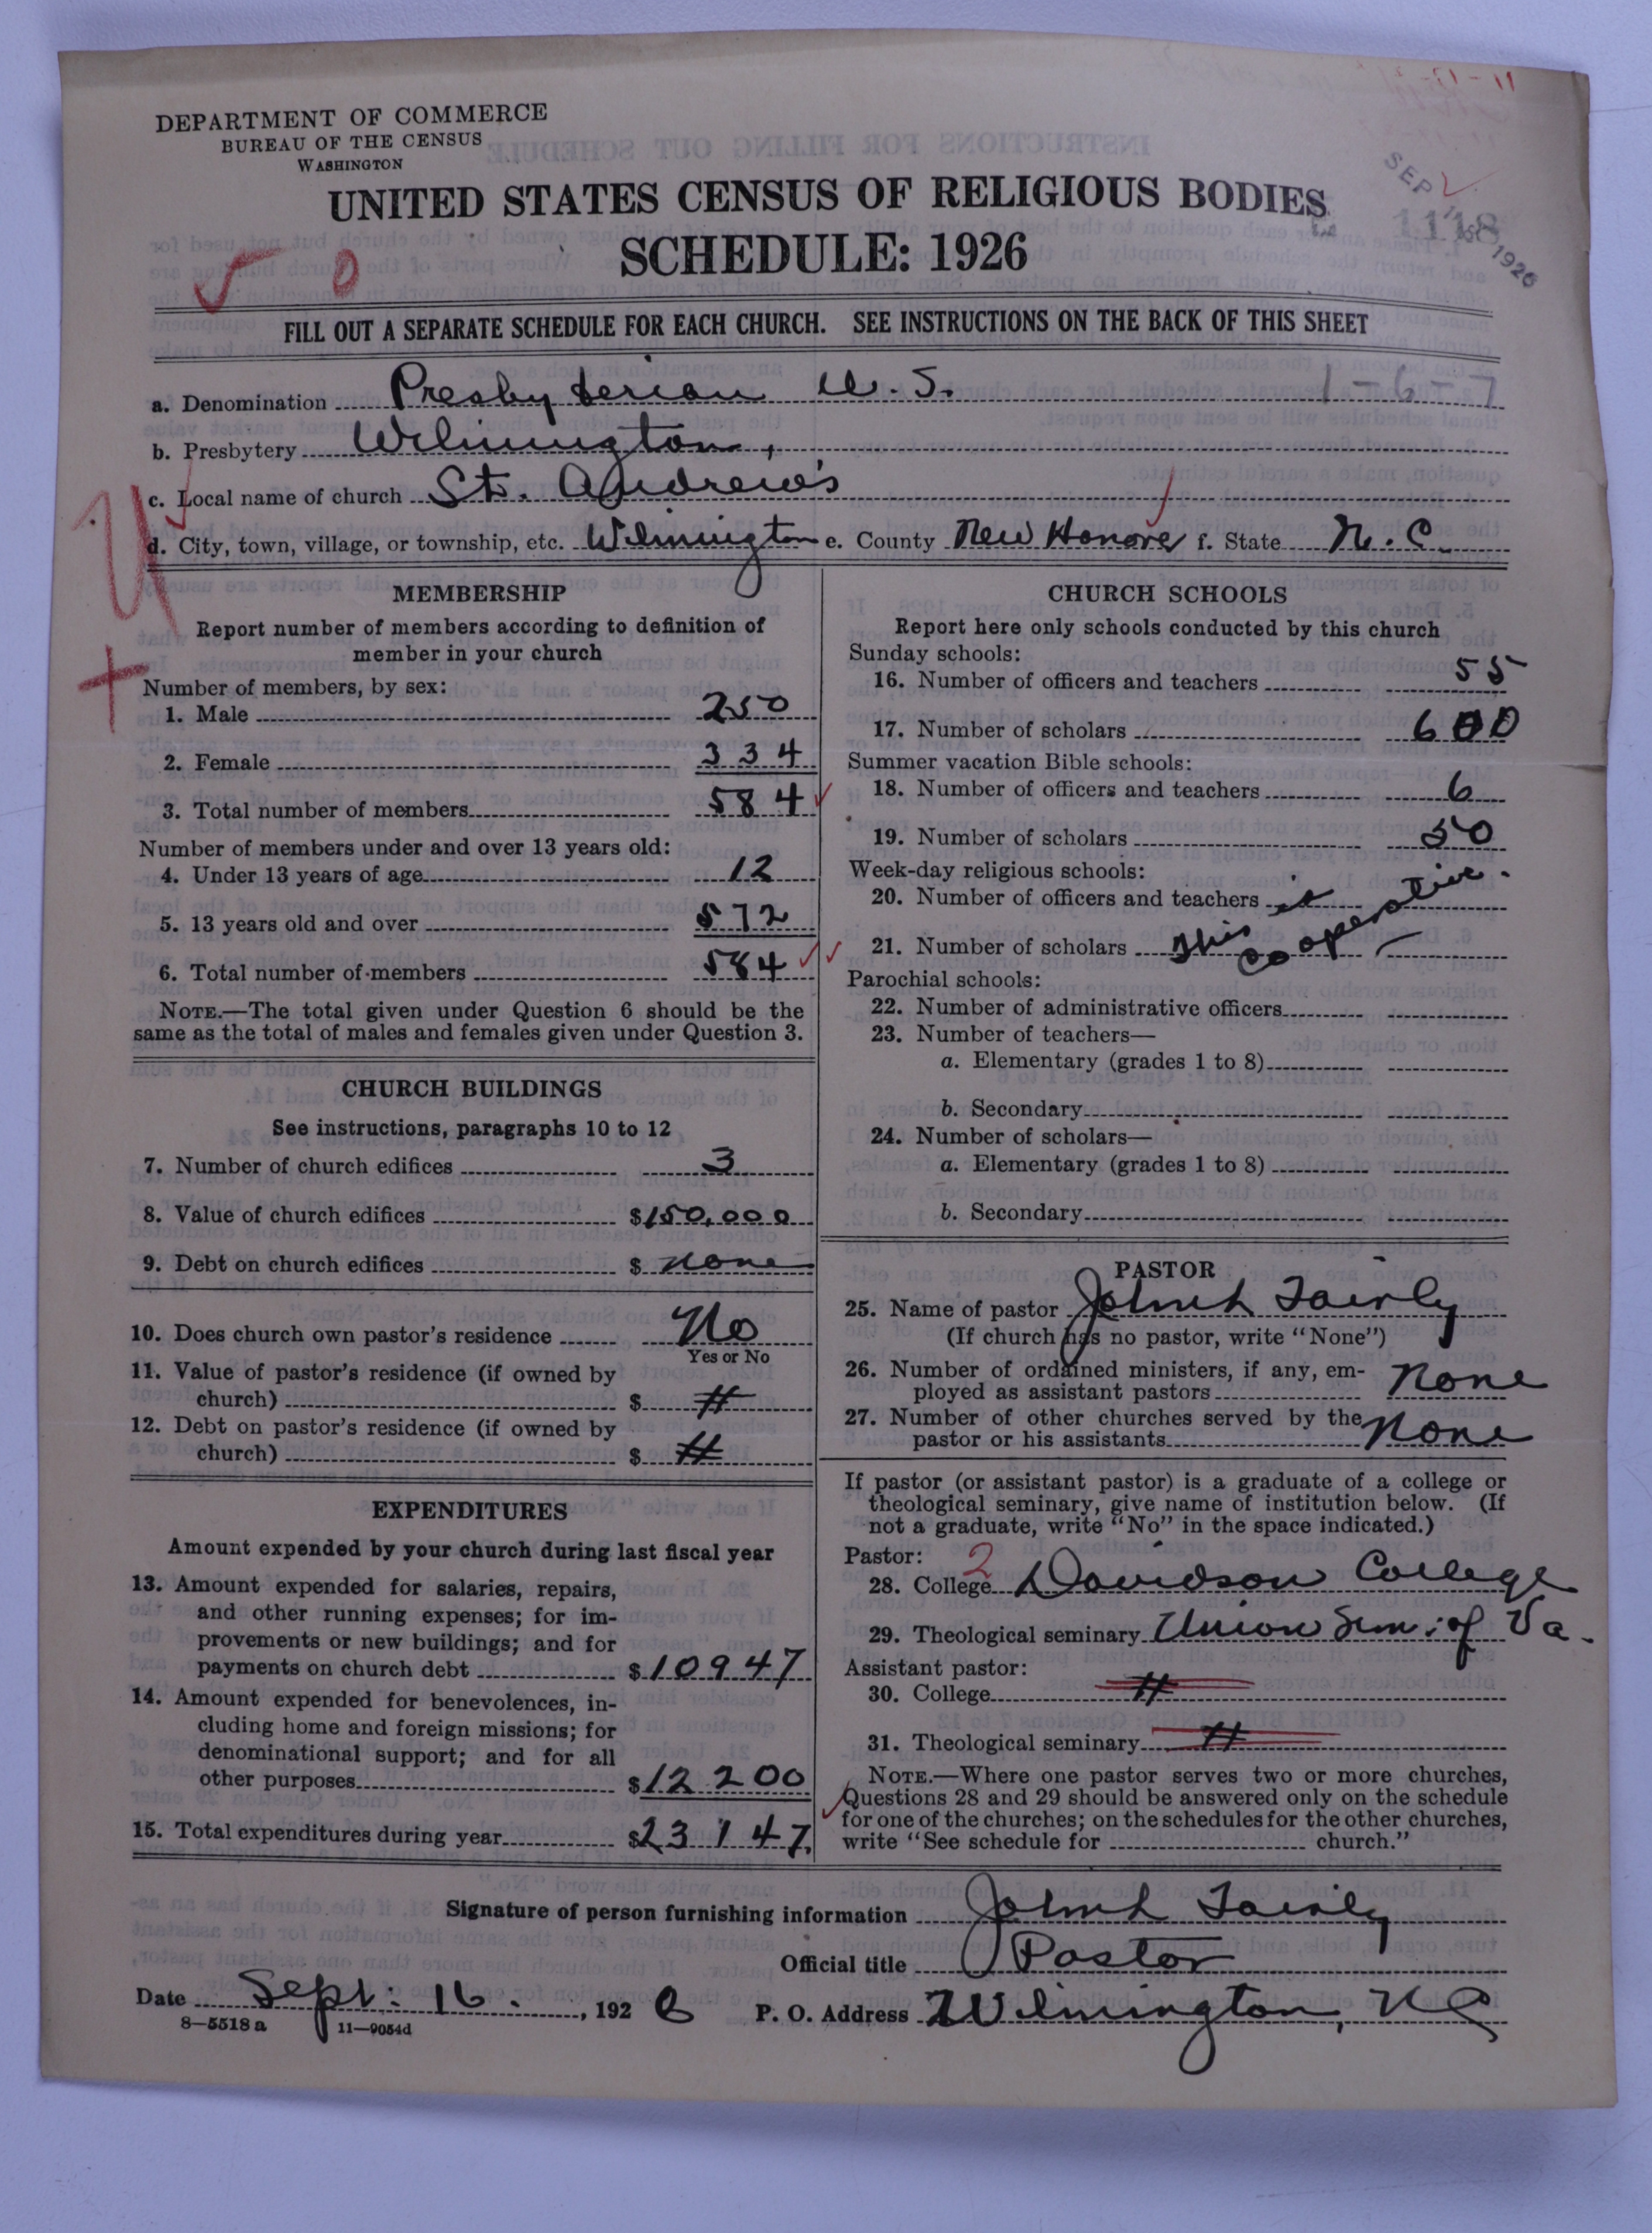 DEPARTMENT OF COMMERCE
BUREAU OF THE CENSUS
WASHINGTON
UNITED STATES CENSUS OF RELIGIOUS BODIES
SCHEDULE: 1926
SEP 1926
1118
FILL OUT A SEPARATE SCHEDULE FOR EACH CHURCH. SEE INSTRUCTIONS ON THE BACK OF THIS SHEET
a. Denomination Presbyterian U.S. 1-6-7
b. Presbytery Wilmington,
c. Local name of church St. Andrew's
d. City, town, village, or township, etc. Wilmington e. County New Hanover f. State N.C.
MEMBERSHIP
Report number of members according to definition of
member in your church
Number of members, by sex:
1. Male 250
2. Female 334
3. Total number of members 584
Number of members under and over 13 years old:
4. Under 13 years of age 12
5. 13 years old and over 572
6. Total number of members 584
NOTE.—The total given under Question 6 should be the
same as the total of males and females given under Question 3.
CHURCH BUILDINGS
See instructions, paragraphs 10 to 12
7. Number of church edifices 3
8. Value of church edifices $150,000
9. Debt on church edifices $ none
10. Does church own pastor's residence No
Yes or No
11. Value of pastor's residence (if owned by
church) $
12. Debt on pastor's residence (if owned by
church) $
EXPENDITURES
Amount expended by your church during last fiscal year
13. Amount expended for salaries, repairs,
and other running expenses; for im-
provements or new buildings; and for
payments on church debt $10947
14. Amount expended for benevolences, in-
cluding home and foreign missions; for
denominational support; and for all
other purposes $12200
15. Total expenditures during year $23147
CHURCH SCHOOLS
Report here only schools conducted by this church
Sunday schools:
16. Number of officers and teachers 55
17. Number of scholars 600
Summer vacation Bible schools:
18. Number of officers and teachers 6
19. Number of scholars 50
Week-day religious schools:
20. Number of officers and teachers
21. Number of scholars This is cooperative.
Parochial schools:
22. Number of administrative officers
23. Number of teachers—
a. Elementary (grades 1 to 8)
b. Secondary
24. Number of scholars—
a. Elementary (grades 1 to 8)
b. Secondary
PASTOR
25. Name of pastor Jno. M. Fairly
(If church has no pastor, write "None")
26. Number of ordained ministers, if any, em-
ployed as assistant pastors None
27. Number of other churches served by the
pastor or his assistants None
If pastor (or assistant pastor) is a graduate of a college or
theological seminary, give name of institution below. (If
not a graduate, write "No" in the space indicated.)
Pastor: 2
28. College Davidson College
29. Theological seminary Union Sem. of Va.
Assistant pastor:
30. College
31. Theological seminary
NOTE.—Where one pastor serves two or more churches,
Questions 28 and 29 should be answered only on the schedule
for one of the churches; on the schedules for the other churches,
write "See schedule for church."
Signature of person furnishing information Fairly
Official title Pastor
Date Sept. 16., 1926 P. O. Address Wilmington, NC
8—5518 a 11—9054d